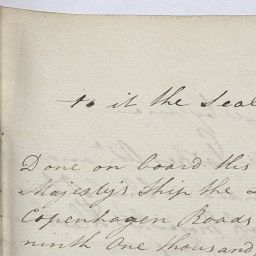 to it the Seal
Done on board His
Majesty's Ship the
Copenhagen Roads
ninth One thousand